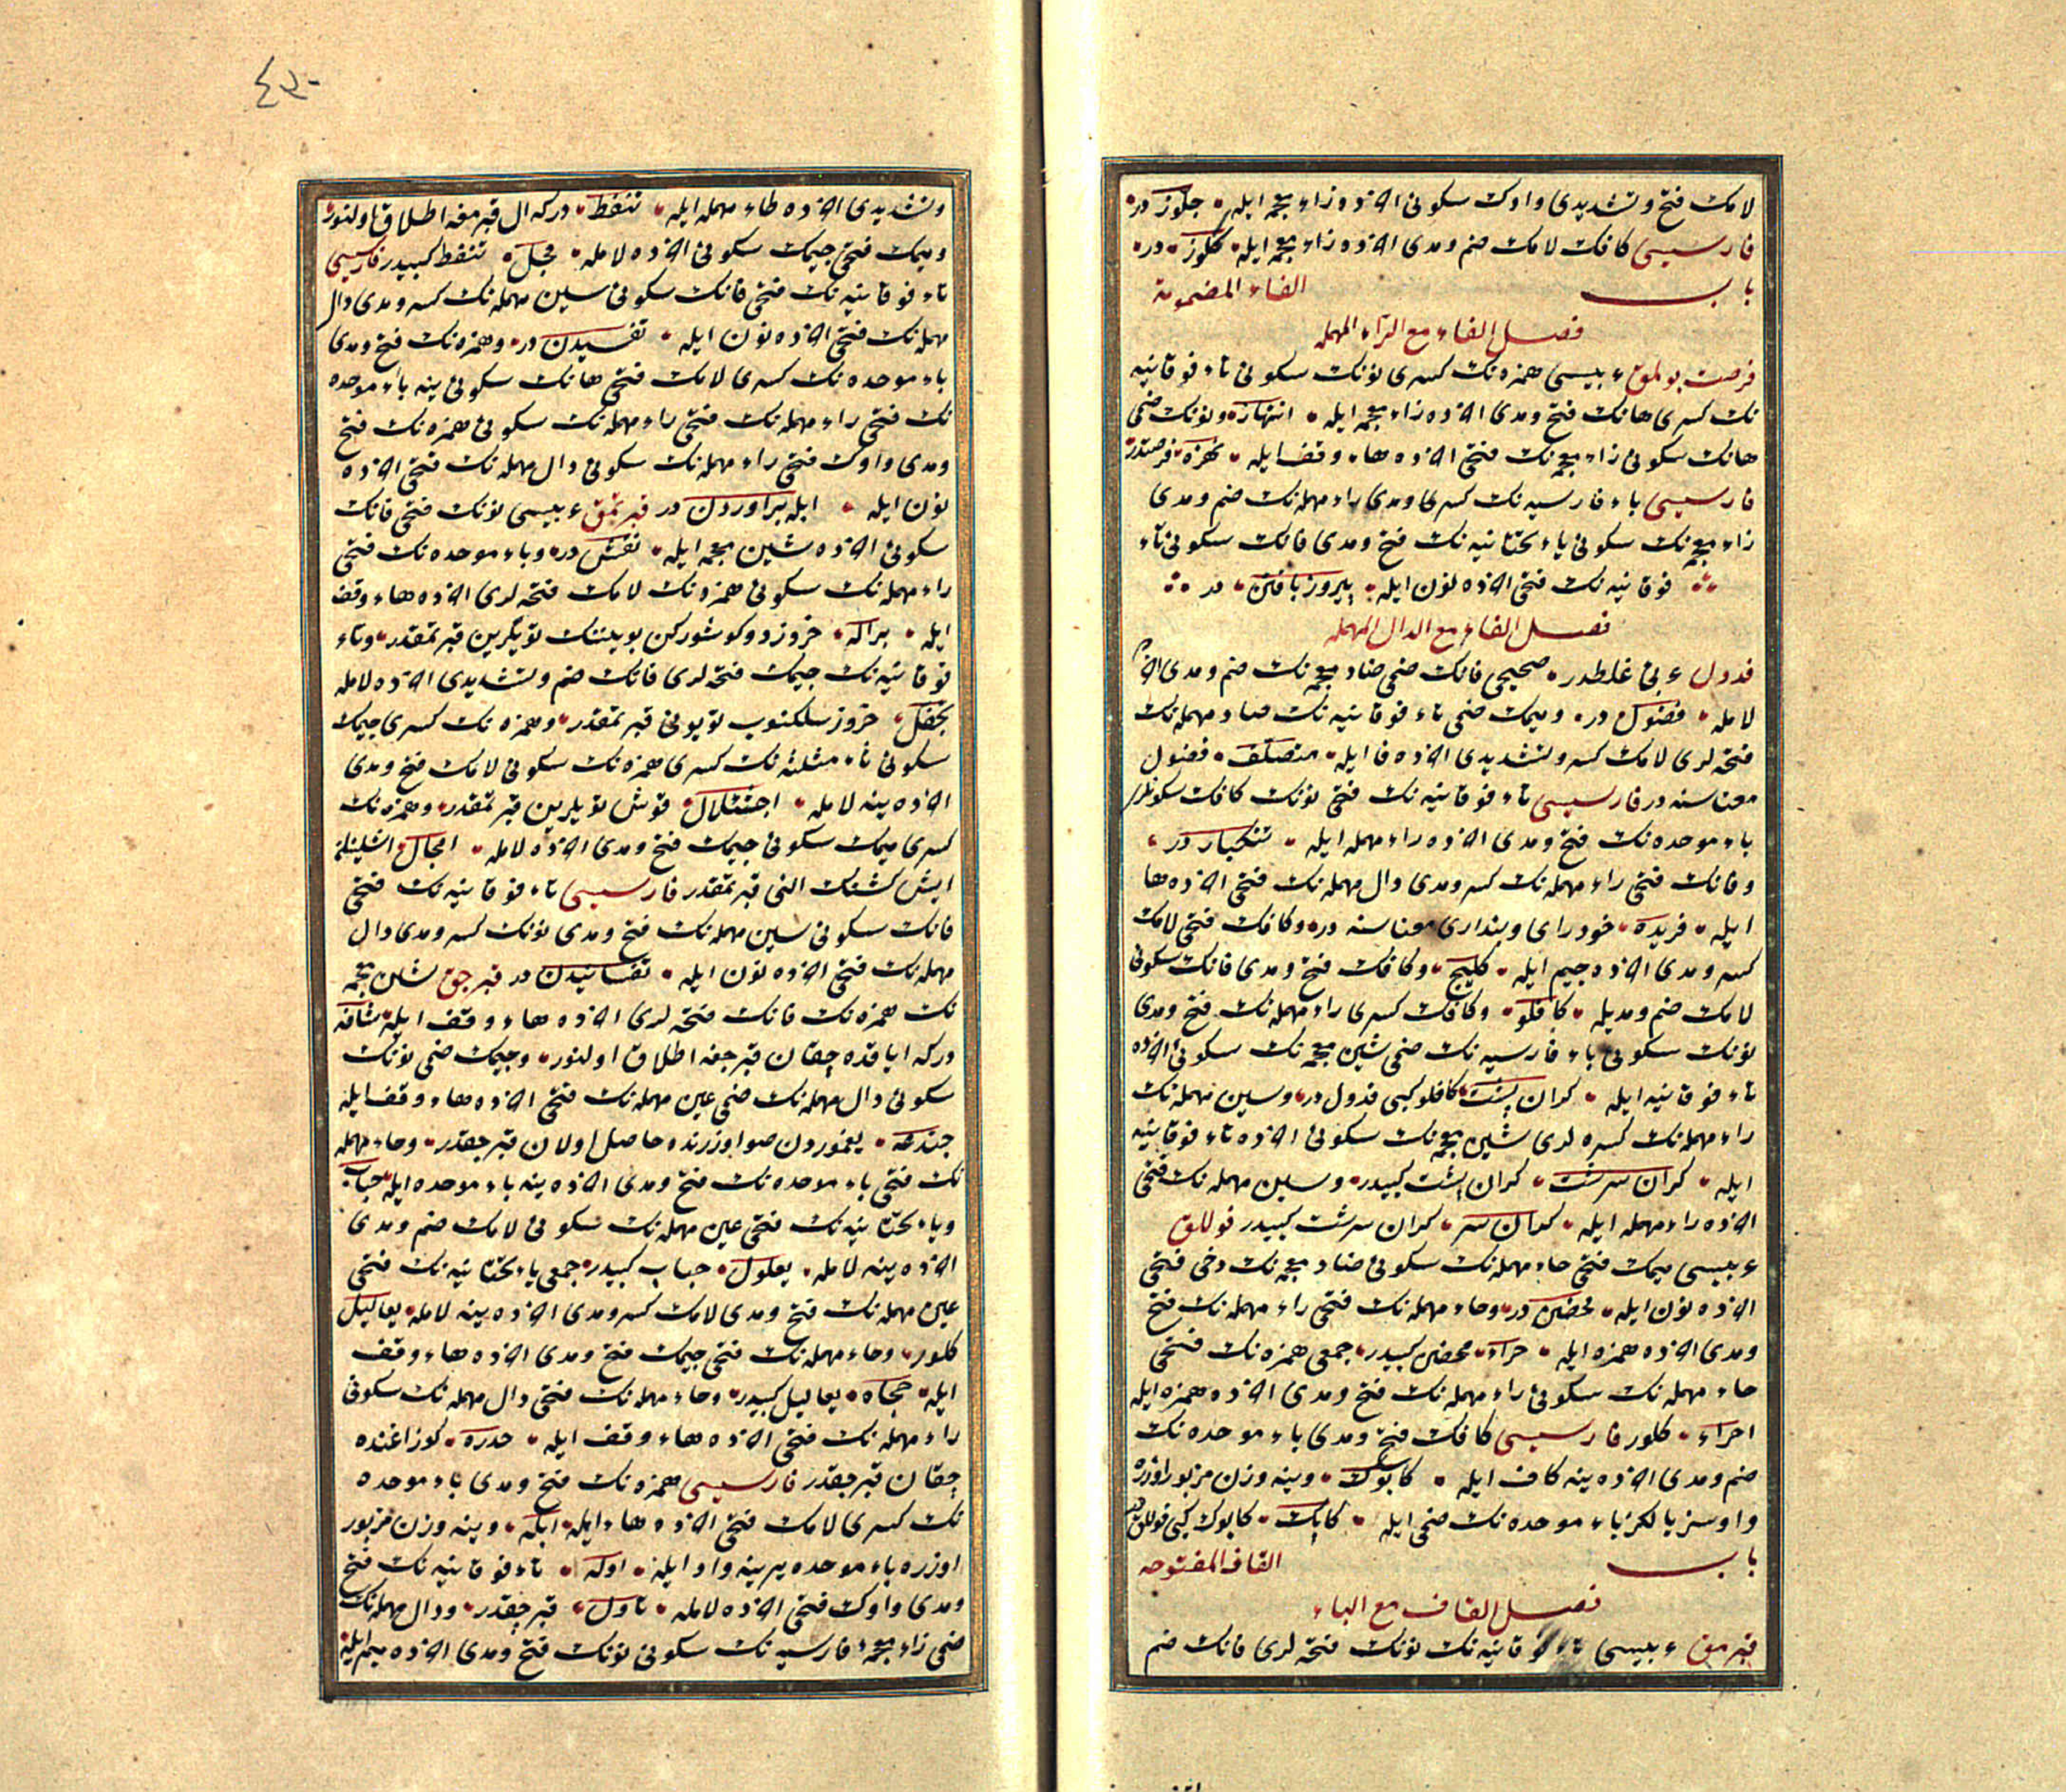 لامك فتح وتشديدى واوك سكونى الآخره زاء معجمه ايله جلوز در
فارسيسى كافك لامك ضم ومدى الآخره زاء معجمه ايله كلوز در
باب الفاء المضمومة
فصل الفاء مع الراء المهمله
فرصت بولمق عربيسى همزه نك كسرى نونك سكونى تاء فوقانيه
نك كسرى هانك فتح ومدى الآخره زاء معجمه ايله انتهاز ونونك ضمى
هانك سكونى زاء معجمه نك فتحى الآخره هاء وقف ايله نهزه فرصتدر
فارسيسى باء فارسيه نك كسرى ومدى راء مهمله نك ضم ومدى
زاء معجمه نك سكونى ياء تحتانيه نك فتح ومدى فانك سكونى تاء
فوقانيه نك فتحى الآخره نون ايله پيروز يافتن در
فصل الفاء مع الدال المهمله
فدول عربى غلطدر صحيحى فانك ضمى ضاد معجمه نك ضم ومدى الآخره
لامله فضول در وميمك ضمى تاء فوقانيه نك صاد مهمله نك
فتحه لرى لامك كسر وتشديدى الآخره فا ايله متصلف فضول
معناسنه در فارسيسى تاء فوقانيه نك فتحى نونك كافك سكونلرى
باء موحده نك فتح ومدى الآخره راء مهمله ايله تنكبار در
وفانك فتحى راء مهمله نك كسر ومدى دال مهمله نك فتحى الآخره ها
ايله فريده خودراى وپندارى معناسنه در وكافك فتحى لامك
كسر ومدى الآخره جيم ايله كليج وكافك فتح ومدى فانك سكونى
لامك ضم ومديله كافلو وكافك كسرى راء مهمله نك فتح ومدى
نونك سكونى باء فارسيه نك ضمى شين معجمه نك سكونى الآخره
تاء فوقانيه ايله كران پشت كافلو كبى فدول در وسين مهمله نك
راء مهمله نك كسره لرى شين معجمه نك سكونى الآخره تاء فوقانيه
ايله كران سرشت كران پشت كبيدر وسين مهمله نك فتحى
الآخره راء مهمله ايله كران سر كران سرشت كبيدر فوللق
عربيسى ميمك فتحى حاء مهمله نك سكونى ضاد معجمه نك دخى فتحى
الآخره نون ايله محضن در وحاء مهمله نك فتحى راء مهمله نك فتح
ومدى الآخره همزه ايله حراء محضن كبيدر جمعى همزه نك فتحى
حاء مهمله نك سكونى راء مهمله نك فتح ومدى الآخره همزه ايله
احراء كلور فارسيسى كافك فتح ومدى باء موحده نك
ضم ومدى الآخره ينه كاف ايله كابوك وينه وزن مزبور اوزره
واوسز يالكز باء موحده نك ضمى ايله كابك كابوك كبى فوللقدر
باب القاف المفتوحه
فصل القاف مع الباء
قبرمق عربيسى تاء فوقانيه نك نونك فتحه لرى فانك ضم
وتشديدى الآخره طاء مهمله ايله تنفط در كه ال قبرمغه اطلاق اولنور
وميمك فتحى جيمك سكونى الآخره لامله مجل تنفط كبيدر فارسيسى
تاء فوقانيه نك فتحى فانك سكونى سين مهمله نك كسر ومدى دال
مهمله نك فتحى الآخره نون ايله تفسيدن در وهمزه نك فتح ومدى
باء موحده نك كسرى لامك فتحى هانك سكونى ينه باء موحده
نك فتحى راء مهمله نك فتحى راء مهمله نك سكونى همزه نك فتح
ومدى واوك فتحى راء مهمله نك سكونى دال مهمله نك فتحى الآخره
نون ايله ابله براوردن در قبرتمق عربيسى نونك فتحى فانك
سكونى الآخره شين معجمه ايله نفش در وباء موحده نك فتحى
راء مهمله نك سكونى همزه نك لامك فتحه لرى الآخره هاء وقف
ايله برأله خروز دوكوشوركن بويننك تويلرين قبرتمقدر وتاء
فوقانيه نك جيمك فتحه لرى فانك ضم وتشديدى الآخره لامله
تجفل خروز سلكنوب تويونى قبرتمقدر وهمزه نك كسرى جيمك
سكونى ثاء مثلثه نك كسرى همزه نك سكونى لامك فتح ومدى
الآخره ينه لامله اجثئلال قوش تويلرين قبرتمقدر وهمزه نك
كسرى ميمك سكونى جيمك فتح ومدى الآخره لامله امجال
ايش كشنك النى قبرتمقدر فارسيسى تاء فوقانيه نك فتحى
فانك سكونى سين مهمله نك فتح ومدى نونك كسر ومدى دال
مهمله نك فتحى الآخره نون ايله تفسانيدن در قبرجق شين معجمه
نك همزه نك فانك فتحه لرى الآخره هاء وقف ايله شأفه
در كه اياقده چقان قبرجغه اطلاق اولنور وجيمك ضمى نونك
سكونى دال مهمله نك ضمى عين مهمله نك فتحى الآخره هاء وقف ايله
جندعه يغموردن صو اوزرنده حاصل اولان قبرجقدر وحاء مهمله
نك فتحى باء موحده نك فتح ومدى الآخره ينه باء موحده ايله حباب
وياء تحتانيه نك فتحى عين مهمله نك سكونى لامك ضم ومدى
الآخره ينه لامله يعلول حباب كبيدر جمعى ياء تحتانيه نك فتحى
عين مهمله نك فتح ومدى لامك كسر ومدى الآخره ينه لامله يعاليل
كلور وحاء مهمله نك فتحى جيمك فتح ومدى الآخره هاء وقف
ايله حجاه يعاليل كبيدر وحاء مهمله نك فتحى دال مهمله نك سكونى
راء مهمله نك فتحى الآخره هاء وقف ايله حدره كوز اغنده
چقان قبرجقدر فارسيسى همزه نك فتح ومدى باء موحده
نك كسرى لامك فتحى الآخره هاء ايله ابله وينه وزن مزبور
اوزره باء موحده يرينه واو ايله اوله تاء فوقانيه نك فتح
ومدى واوك فتحى الآخره لامله تاول قبرجقدر ودال مهمله نك
ضمى زاء معجمه فارسيه نك سكونى نونك فتح ومدى الآخره ميم ايله